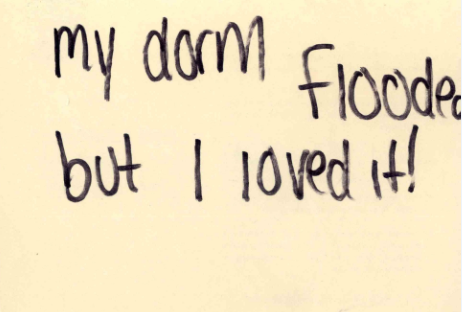 my dorm flooded
but I loved it!